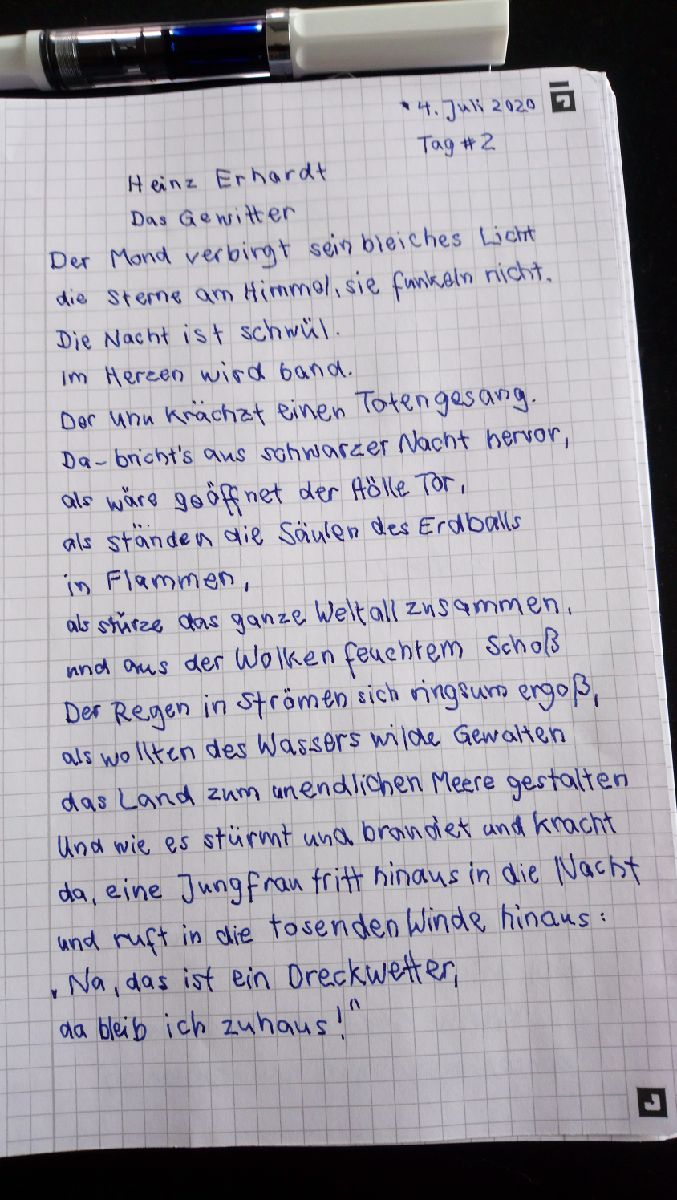 4. Juli 2020
Tag #2
Heinz Erhardt
Das Gewitter
Der Mond verbirgt sein bleiches Licht
die Sterne am Himmel, sie funkeln nicht.
Die Nacht ist schwül.
im Herzen wird band.
Der Uhu krächzt einen Totengesang.
Da-bricht's aus schwarzer Nacht hervor,
als wäre geöffnet der Hölle Tor,
als ständen die Säulen des Erdballs
in Flammen,
als stürze das ganze Weltall zusammen.
und aus der Wolken feuchtem Schoß
Der Regen in Strömen sich ringsum ergoß,
als wollten des Wassers wilde Gewalten
das Land zum unendlichen Meere gestalten
Und wie es stürmt und brandet und kracht
da, eine Jungfrau tritt hinaus in die Nacht
und ruft in die tosenden Winde hinaus:
„Na, das ist ein Dreckwetter,
da bleib ich zuhaus!"